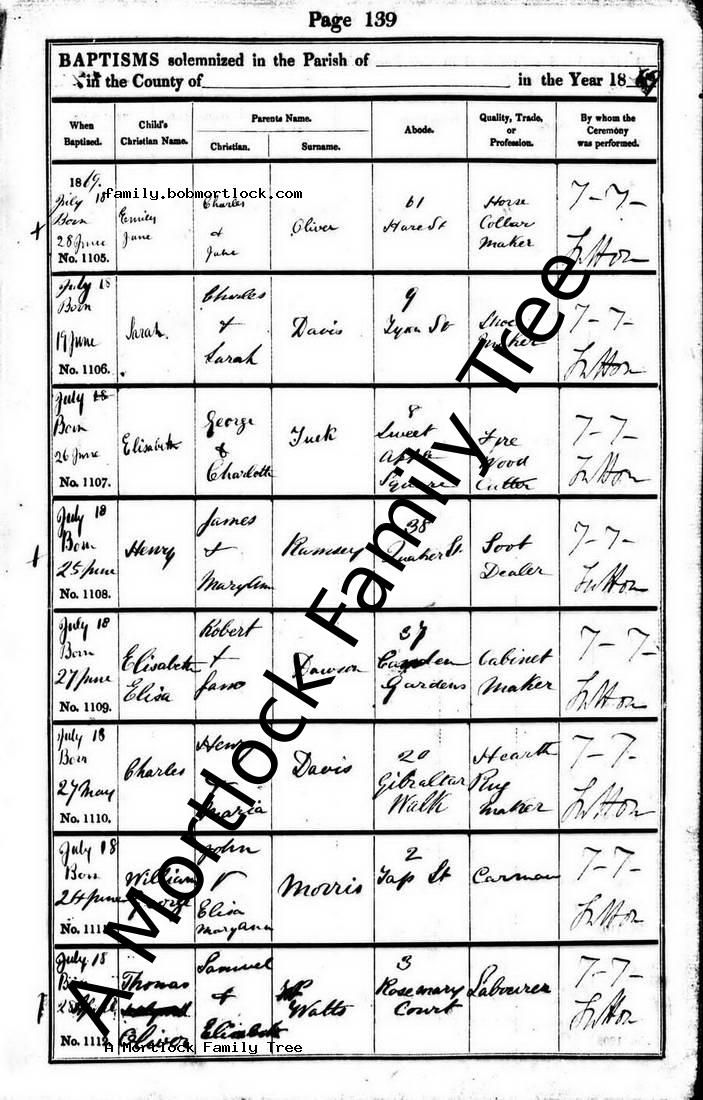 Page 139
BAPTISMS solemnized in the Parish of
in the County of in the Year 18
When Baptized.
Child's Christian Name.
Parents Name.
Christian.
Surname.
Abode.
Quality, Trade, or Profession.
By whom the Ceremony was performed.
1819.
family.bobmortlock.com
July 18
Born
28 June
No. 1105.
Jane
Charles
&
Jane
Oliver
61
Hare St
Horse
Collar
Maker
July 18
Born
19 June
No. 1106.
Sarah
Charles
+
Sarah
Davis
9
Shoe
Maker
July 18
Born
26 June
No. 1107.
Elisabeth
George
&
Charlotte
Tuck
8
Sweet
Apple
Square
Fire
Wood
Cutter
July 18
Born
25 June
No. 1108.
Henry
James
+
MaryAnn
Ramsey
38
Quaker St
Soot
Dealer
July 18
Born
27 June
No. 1109.
Elisabeth
Elisa
Robert
+
Jane
Dawson
37
Camden
Gardens
Cabinet
Maker
July 18
Born
27 May
No. 1110.
Charles
Henry
Maria
Davis
20
Gibraltar
Walk
Hearth
Rug
Maker
July 18
Born
24 June
No. 111
William
John
Elisa
MaryAnn
Morris
2
Tap St
Carman
July 18
No. 1112.
Thomas
Samuel
+
Elizabeth
Watts
3
Rosemary
Court
Labourer
A Mortlock Family Tree
A Mortlock Family Tree